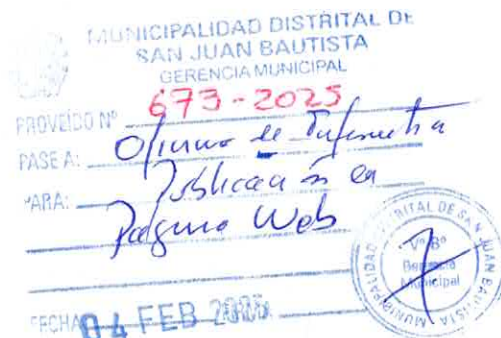 MUNICIPALIDAD DISTRITAL DE
SAN JUAN BAUTISTA
GERENCIA MUNICIPAL
PROVEÍDO Nº 673-2025
PASE A: Oficina de Informática
PARA: Publicación en
Pagina Web
FECHA 04 FEB 2025
MUNICIPALIDAD DISTRITAL DE SAN JUAN BAUTISTA
Vº Bº
Gerencia
Municipal